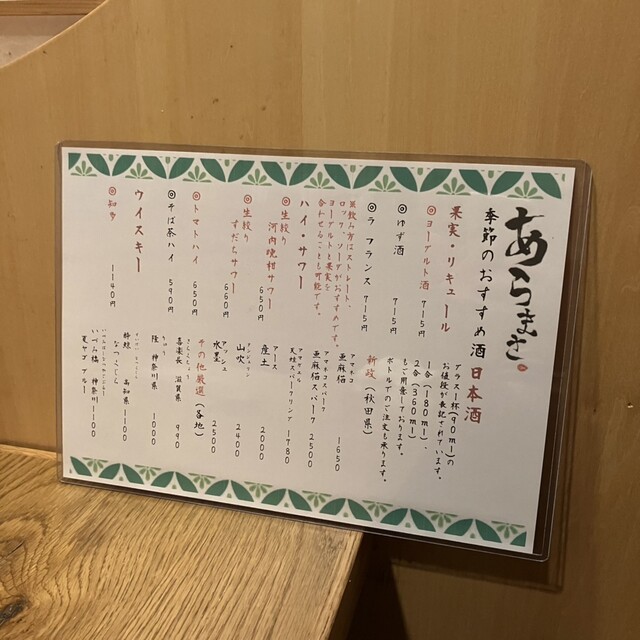 あらまさ
季節のおすすめ酒
果実・リキュール
◎ヨーグルト酒 715円
◎ゆず酒 715円
◎ラ フランス 715円
※飲み方はストレート、
ロック、ソーダがおすすめです。
ヨーグルトと果実を
合わせることも可能です。
ハイ・サワー
◎生絞り
河内晩柑サワー 650円
◎生絞り
すだちサワー 660円
◎トマトハイ 650円
◎そば茶ハイ 590円
ウイスキー
◎知多 1140円
日本酒
グラス一杯(90ml)の
お値段が表記されています。
1合(180ml)、
2合(360ml)
もご用意しております。
ボトルでのご注文も承ります。
新政(秋田県)
アマネコ
亜麻猫 1650
アマネコスパーク
亜麻猫スパーク 2500
天蛙スパークリング 1780
アース
産土 2000
山吹 2400
アッシュ
水墨 2500
その他厳選(各地)
きらくちょう
喜楽長 滋賀県 990
りゅう
隆 神奈川県 1000
なつごこち
酔鯨 高知県 1100
いづみ橋 神奈川 1100
夏ヤゴ ブルー